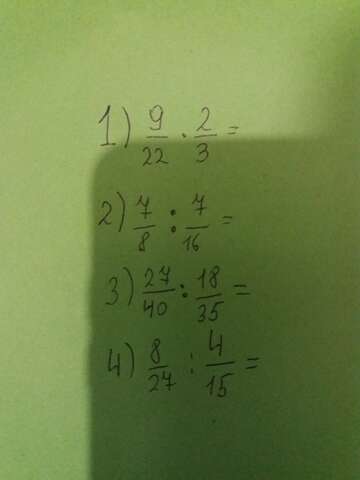 1) 9/22 · 2/3 =
2) 7/8 : 7/16 =
3) 27/40 : 18/35 =
4) 8/27 : 4/15 =